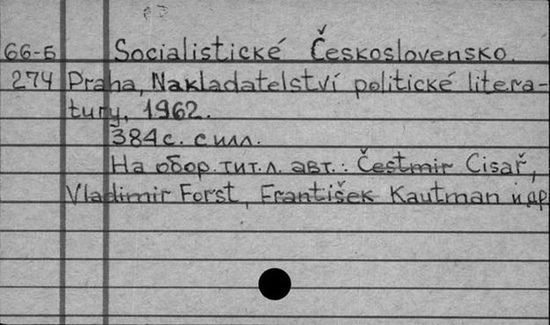 66-Б Socialistické Československo.
274 Praha, Nakladatelství politické litera-
tury, 1962.
384с. с илл.
На обор. тит. л. авт.: Čestmir Cisař,
Vladimir Forst, František Kautman и др.